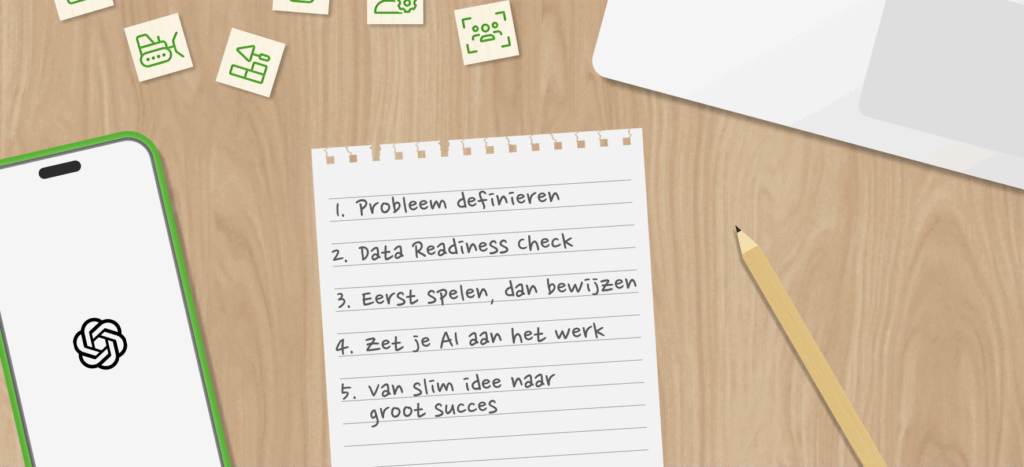 1. Probleem definieren
2. Data Readiness check
3. Eerst spelen, dan bewijzen
4. Zet je AI aan het werk
5. van slim idee naar
groot succes